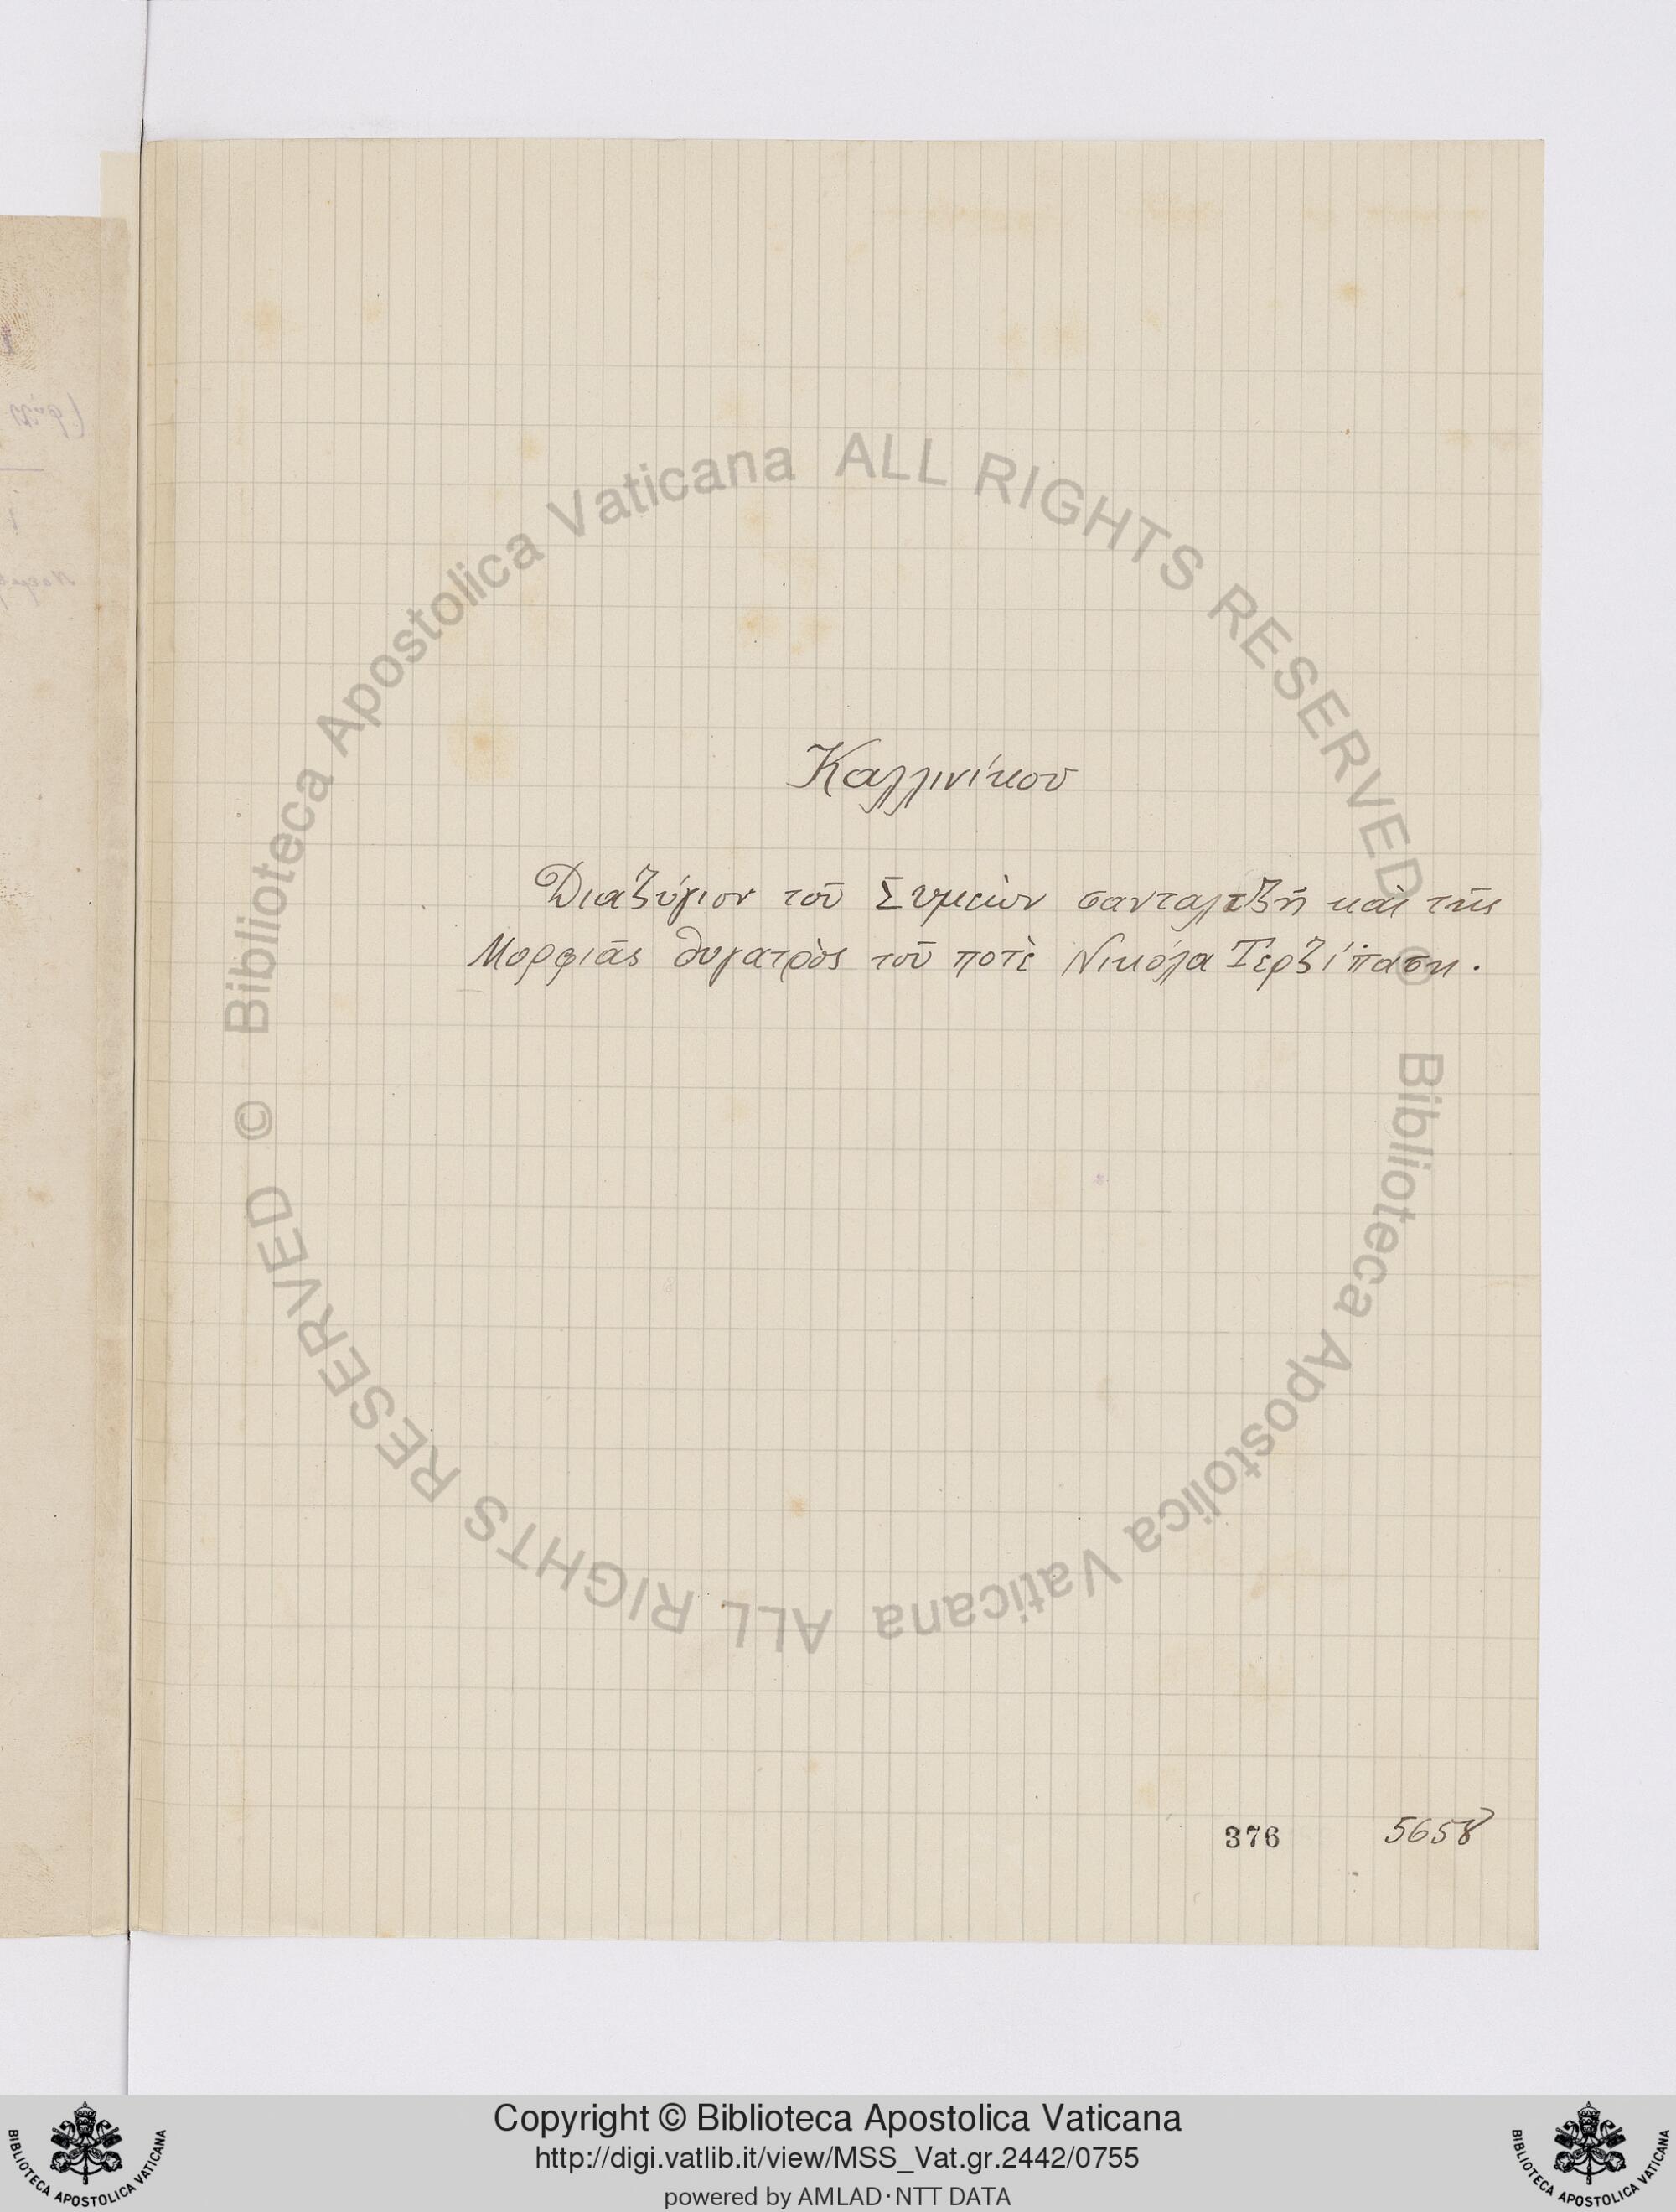 Καλλινίκου
Διαζύγιον τοῦ Συμεὼν σανταλτζῆ καὶ τῆς
Μορφιᾶς θυγατρὸς τοῦ ποτὲ Νικόλα Τερζίπαση.
376 5658
© Biblioteca Apostolica Vaticana ALL RIGHTS RESERVED
© Biblioteca Apostolica Vaticana ALL RIGHTS RESERVED
Copyright © Biblioteca Apostolica Vaticana
http://digi.vatlib.it/view/MSS_Vat.gr.2442/0755
powered by AMLAD·NTT DATA
BIBLIOTECA APOSTOLICA VATICANA
BIBLIOTECA APOSTOLICA VATICANA